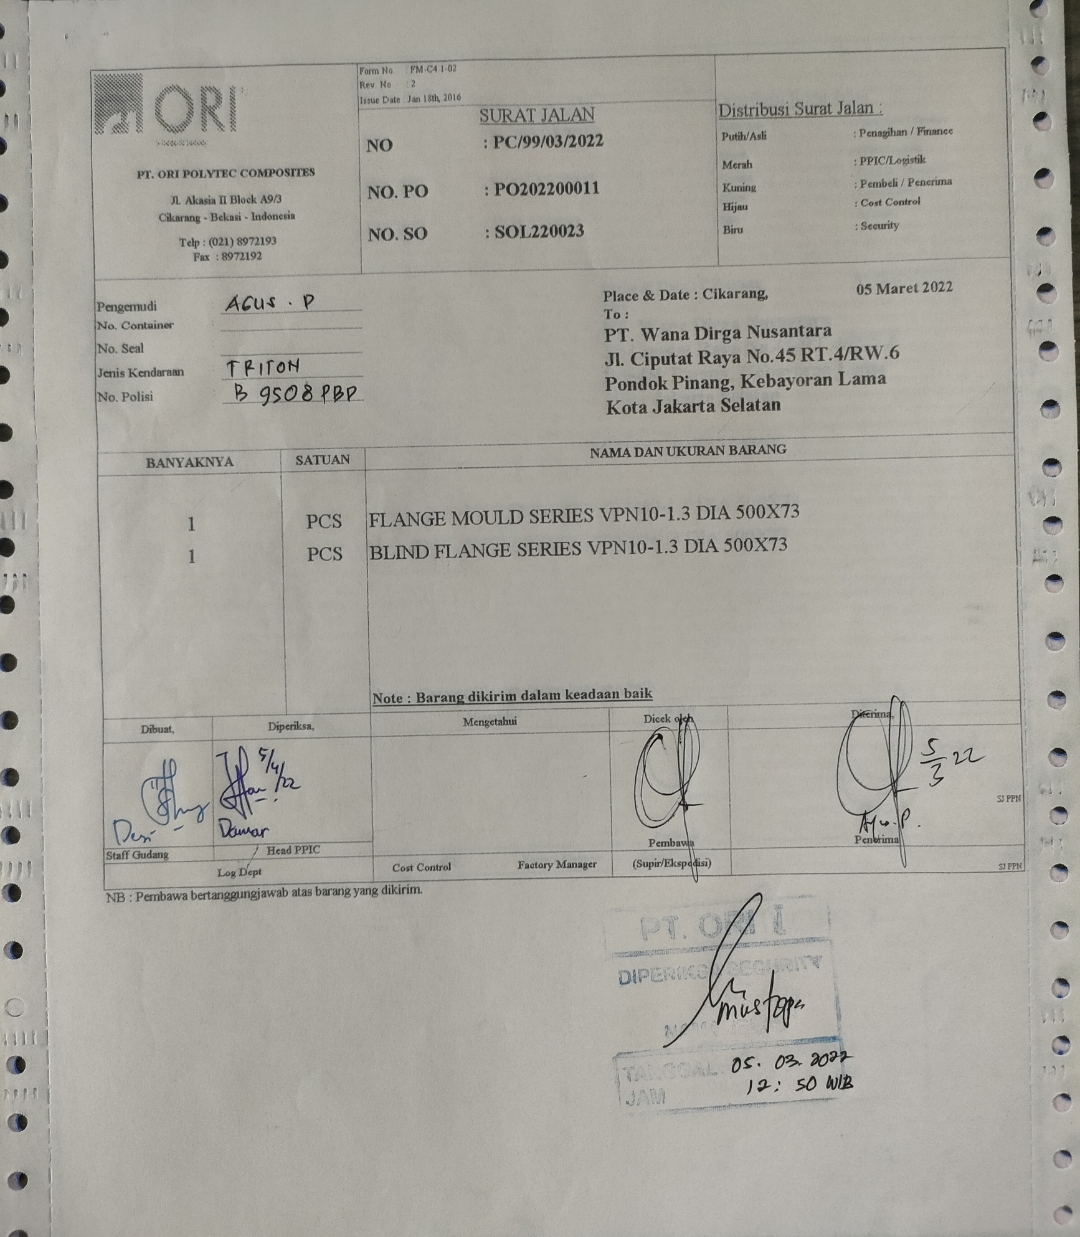 ORI
PT. ORI POLYTEC COMPOSITES
Jl. Akasia II Block A9/3
Cikarang - Bekasi - Indonesia
Telp : (021) 8972193
Fax : 8972192
Form No : FM-C4.1-02
Rev. No : 2
Issue Date : Jan 18th, 2016
SURAT JALAN
NO : PC/99/03/2022
NO. PO : PO202200011
NO. SO : SOL220023
Distribusi Surat Jalan :
Putih/Asli : Penagihan / Finance
Merah : PPIC/Logistik
Kuning : Pembeli / Penerima
Hijau : Cost Control
Biru : Security
Pengemudi AGUS . P
No. Container
No. Seal
Jenis Kendaraan TRITON
No. Polisi B 9508 PBD
Place & Date : Cikarang, 05 Maret 2022
To :
PT. Wana Dirga Nusantara
Jl. Ciputat Raya No.45 RT.4/RW.6
Pondok Pinang, Kebayoran Lama
Kota Jakarta Selatan
BANYAKNYA SATUAN NAMA DAN UKURAN BARANG
1 PCS FLANGE MOULD SERIES VPN10-1.3 DIA 500X73
1 PCS BLIND FLANGE SERIES VPN10-1.3 DIA 500X73
Note : Barang dikirim dalam keadaan baik
Dibuat, Diperiksa, Mengetahui Dicek oleh Diterima,
5/4/22
5/3 22
SJ PPN
Desi Damar Agus.P.
Staff Gudang Head PPIC Pembawa Penerima
Log Dept Cost Control Factory Manager (Supir/Ekspedisi) SJ PPN
NB : Pembawa bertanggungjawab atas barang yang dikirim.
PT. ORI
DIPERIKSA SECURITY
mustopa
TANGGAL 05. 03. 2022
JAM 12 : 50 WIB